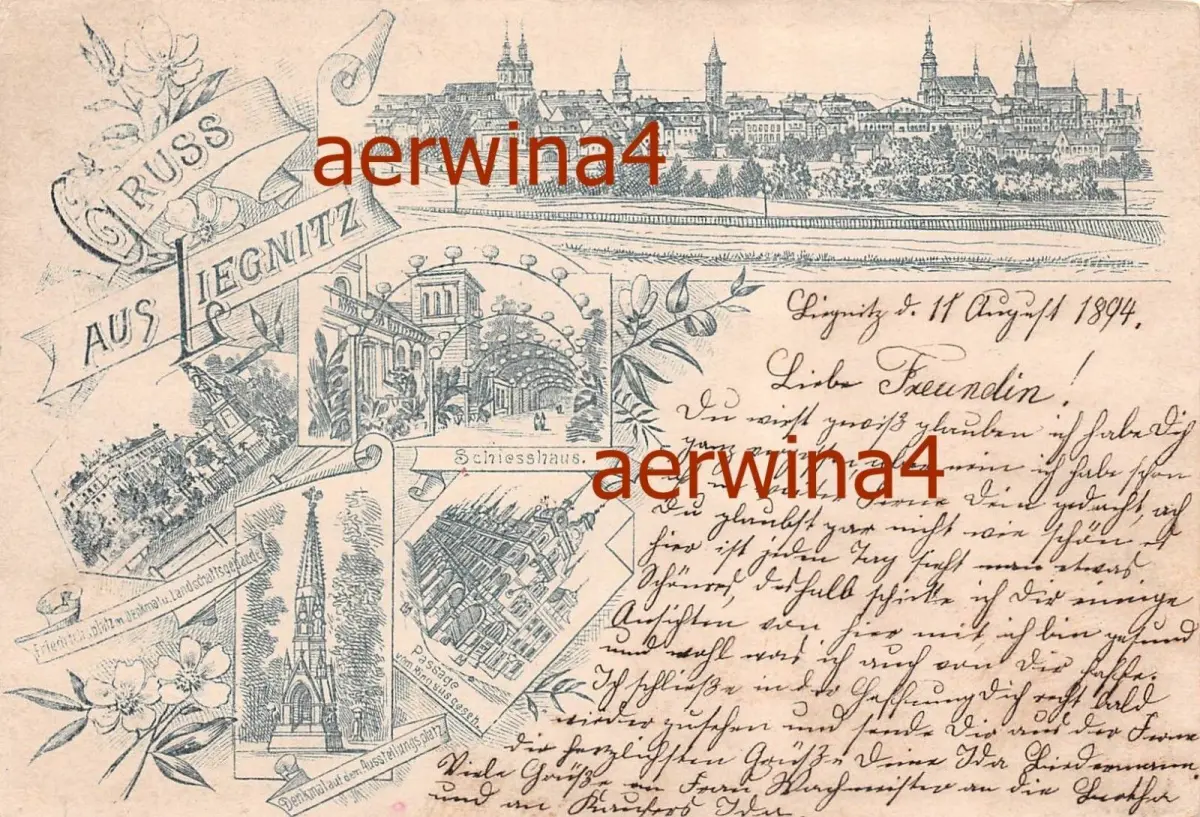 GRUSS
AUS LIEGNITZ
aerwina4
Schiesshaus.
Friedrichsplatz m. Denkmal u. Landschaftsgebäude
Passage
vom Ring aus geseh.
Denkmal auf dem Ausstellungsplatz
Liegnitz d. 11 August 1894.
Liebe Freundin!
Du wirst gewiß glauben ich habe Dich
ganz nein ich habe schon
aerwina4
Ferne Dein gedacht, ach
Du glaubst gar nicht wie schön es
hier ist jeden Tag sieht man etwas
Schönres, deshalb schicke ich Dir einige
Ansichten von hier mit, ich bin gesund
und wohl was ich auch von Dir hoffe.
Ich schließe in der Hoffnung Dich recht bald
wieder zusehen und sende Dir aus der Ferne
die herzlichsten Grüße Deine Ida Biedermann
Viele Grüße an Frau Wachmeister an die Bertha
und an Ida